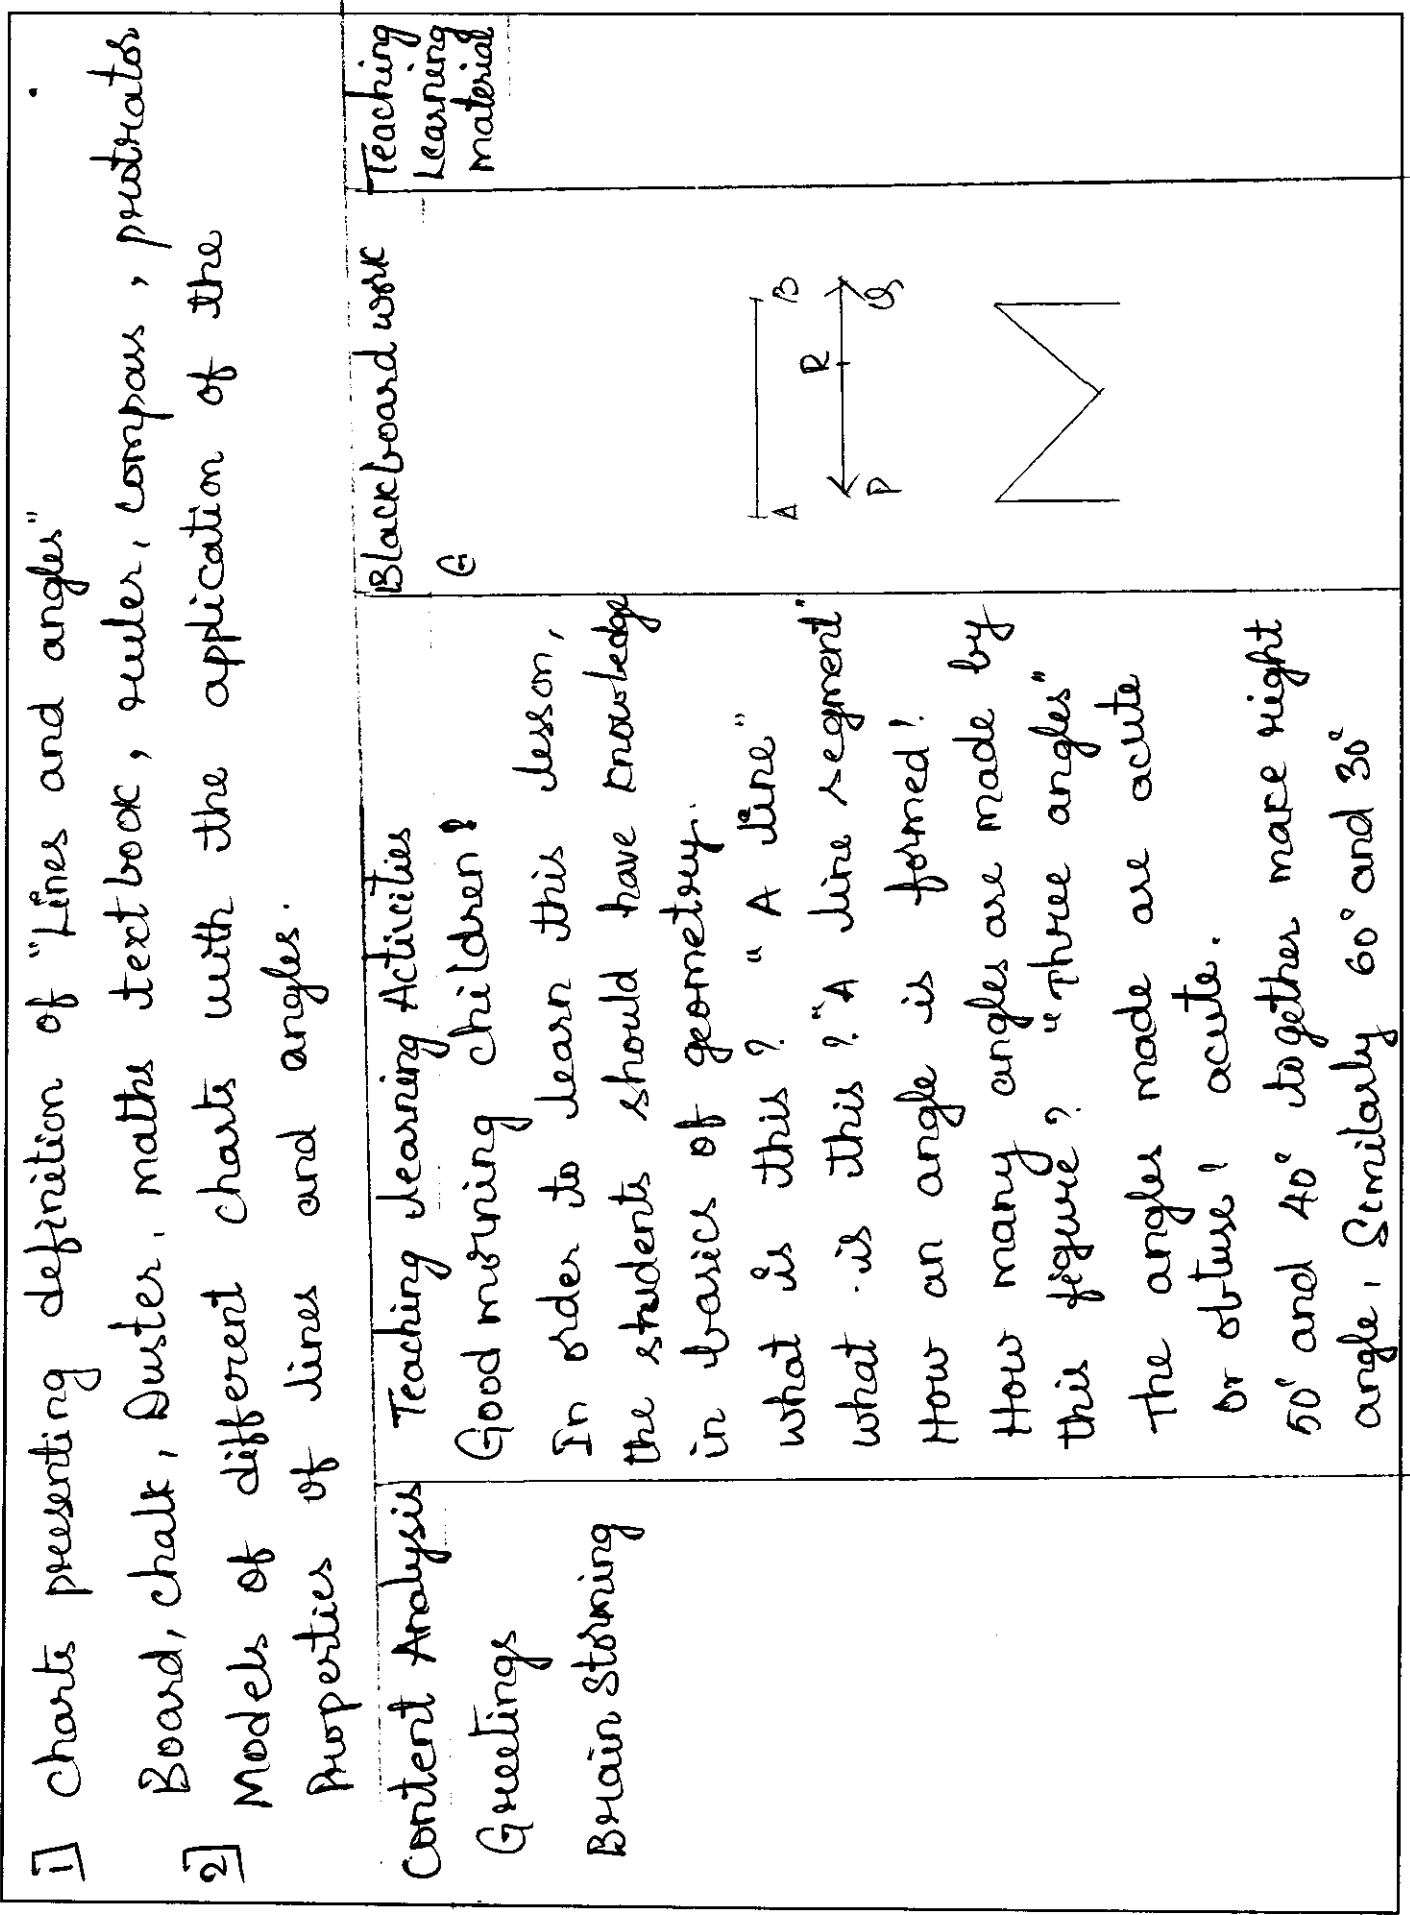 1] Charts presenting definition of "Lines and angles"
Board, chalk, Duster, maths text book, ruler, compass, protrator
2] Models of different charts with the application of the
Properties of lines and angles.
Content Analysis
Teaching Learning Activities
Blackboard work
Teaching
Learning
material
Greetings
Good morning children!
G
Brain Storming
In order to learn this lesson,
the students should have knowledge
in basics of geometry.
what is this? "A line"
what is this? "A line segment"
How an angle is formed?
How many angles are made by
this figure? "Three angles"
The angles made are acute
or obtuse? acute.
50° and 40° together make right
angle, Similarly 60° and 30°
A B
R
P Q